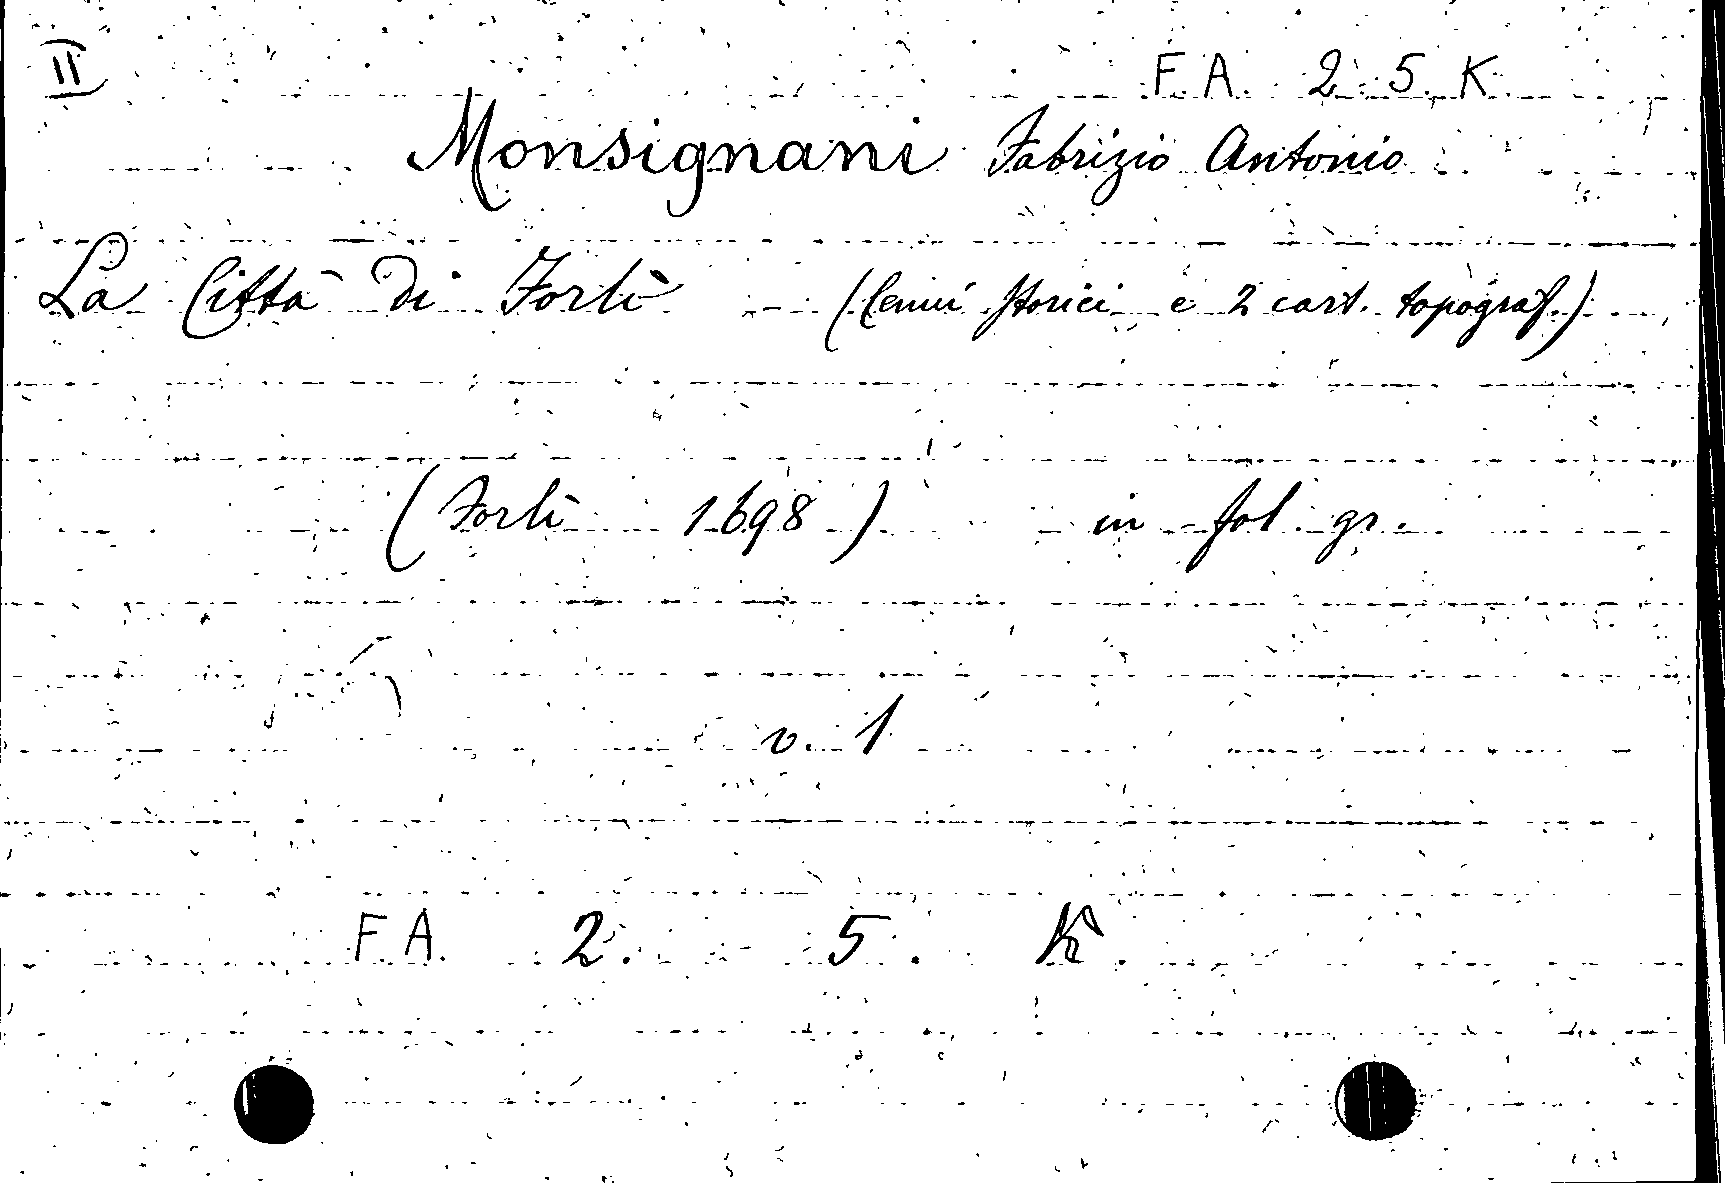 II
F. A. 2. 5. K.
Monsignani Fabrizio Antonio
La Città di Forlì (Cenni storici e 2 cart. topograf.)
(Forlì 1698) in fol. gr.
v. 1
F. A. 2. 5. K.